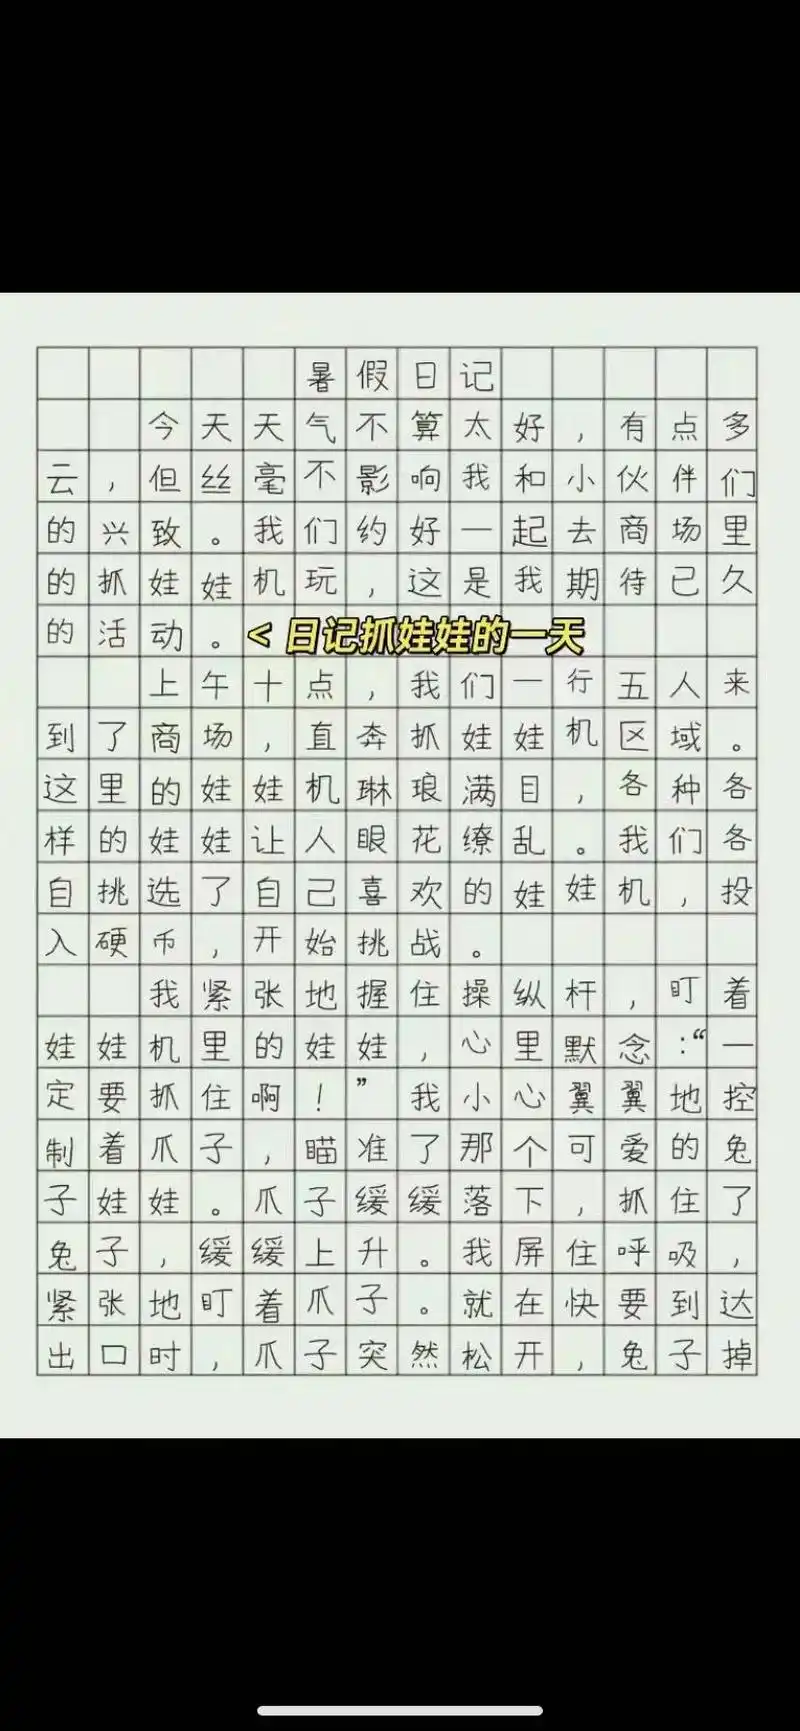 暑假日记
今天天气不算太好，有点多
云，但丝毫不影响我和小伙伴们
的兴致。我们约好一起去商场里
的抓娃娃机玩，这是我期待已久
的活动。
<日记抓娃娃的一天
上午十点，我们一行五人来
到了商场，直奔抓娃娃机区域。
这里的娃娃机琳琅满目，各种各
样的娃娃让人眼花缭乱。我们各
自挑选了自己喜欢的娃娃机，投
入硬币，开始挑战。
我紧张地握住操纵杆，盯着
娃娃机里的娃娃，心里默念：“一
定要抓住啊！”我小心翼翼地控
制着爪子，瞄准了那个可爱的兔
子娃娃。爪子缓缓落下，抓住了
兔子，缓缓上升。我屏住呼吸，
紧张地盯着爪子。就在快要到达
出口时，爪子突然松开，兔子掉